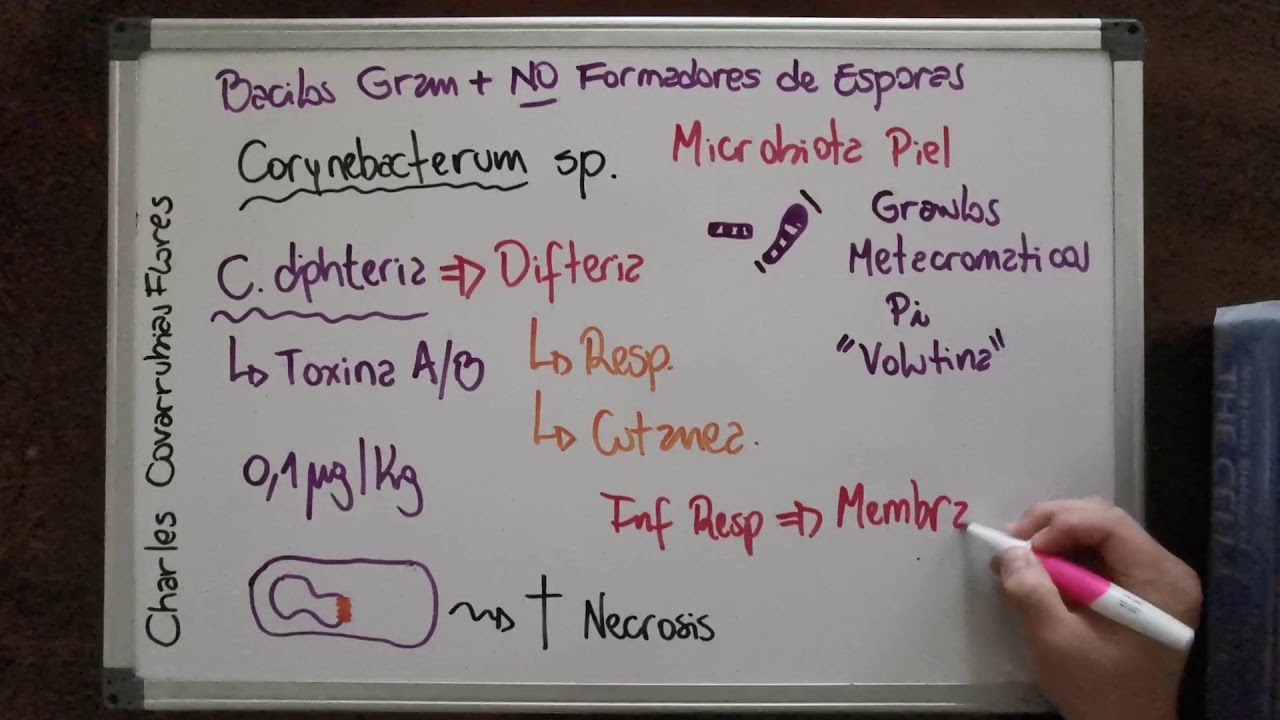 Bacilos Gram + NO Formadores de Esporas
Corynebacterum sp.
Microbiota Piel
Granulos
Metacromaticos
Pi
"Volutina"
C. diphteria ⇒ Difteria
↳ Toxina A/B
↳ Resp.
↳ Cutanea.
0,1 μg/Kg
Inf Resp ⇒ Membra
† Necrosis
Charles Covarrubias Flores
THE CELL